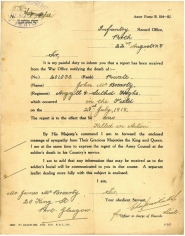 Army Form B. 104—82.
Infantry Record Office,
Perth
22nd August 1918
Sir,
It is my painful duty to inform you that a report has been received from the
War Office notifying the death of:—
(No.) (Rank) Private
(Name) John
(Regiment) Argyll & Suth'd Highrs
which occurred in the Field
on the July, 1918.
The report is to the effect that he was
Killed in Action
By His Majesty's command I am to forward the enclosed
message of sympathy from Their Gracious Majesties the King and Queen.
I am at the same time to express the regret of the Army Council at the
soldier's death in his Country's service.
I am to add that any information that may be received as to the
soldier's burial will be communicated to you in due course. A separate
leaflet dealing more fully with this subject is enclosed.
I am,
Sir,
Your obedient Servant,
Mr James
King St
Port Glasgow
Officer in charge of Records.